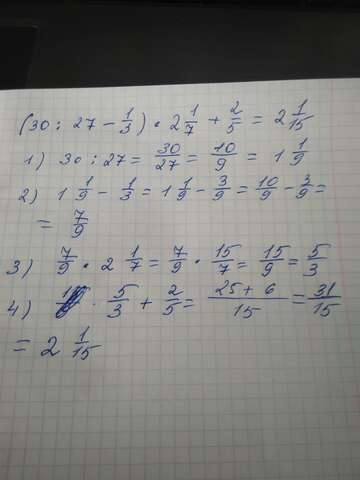 (30 : 27 - 1/3) · 2 1/7 + 2/5 = 2 1/15
1) 30 : 27 = 30/27 = 10/9 = 1 1/9
2) 1 1/9 - 1/3 = 1 1/9 - 3/9 = 10/9 - 3/9 =
= 7/9
3) 7/9 · 2 1/7 = 7/9 · 15/7 = 15/9 = 5/3
4) 5/3 + 2/5 = 25 + 6/15 = 31/15
= 2 1/15